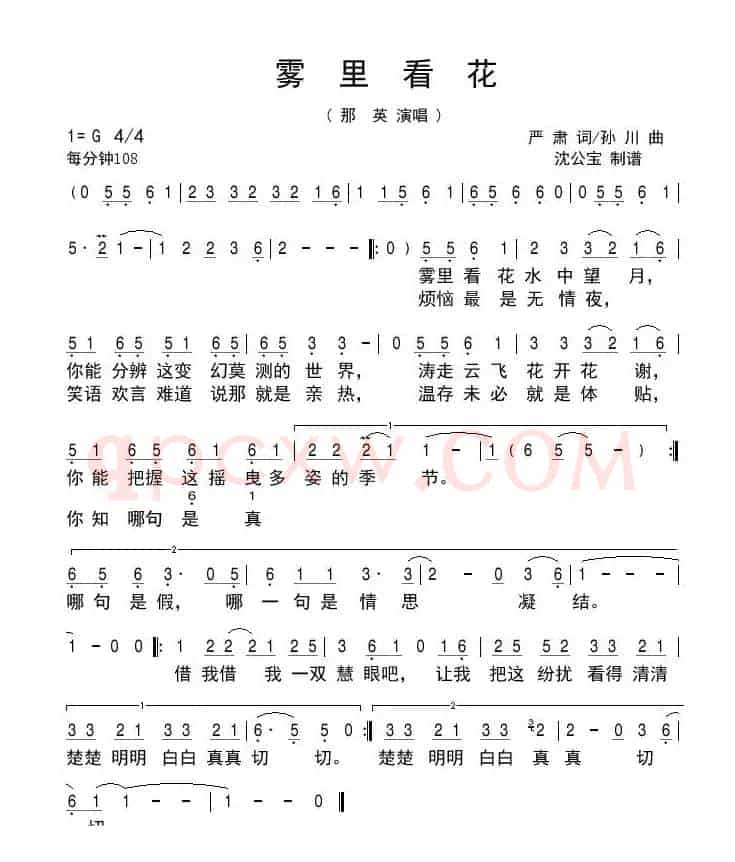 雾里看花
（那 英 演唱）
1=G 4/4 严 肃 词/孙 川 曲
每分钟108 沈公宝 制谱
(0 5 5 6 1 | 2 3 3 2 3 3 2 1 6 | 1 1 5 5 6 1 | 6 0 6 0 6 0 | 0 5 5 6 1
5· 2 1 - | 1 2 2 3 6 | 2 - - - ‖: 0 ) 5 5 6 1 | 2 3 3 2 1 6
雾里 看 花 水 中 望 月，
烦恼 最 是 无 情 夜，
5 1 6 5 6 5 5 1 | 6 5 5 3 3 - | 0 5 5 6 1 | 3 3 3 2 1 6
你能 分辨 这变 幻莫 测的 世 界， 涛走 云飞 花开花 谢，
笑语 欢言 难道 说那 就是 亲热， 温存 未必 就是体 贴，
1
5 1 6 5 6 1 6 1 | 2 2 2 2 1 1 - | 1 ( 6 5 5 - ) :‖
qpcxw.COM
你能 把握 这摇 曳多 姿的季 节。
6 1
你知 哪句 是 真
2
6 5 6 3· 0 5 | 6 6 6 1 3· 3 | 2 - 0 3 6 | 1 - - -
哪 句 是 假， 哪 一 句是 情 思 凝 结。
1 - 0 0 ‖: 1 2 2 2 1 2 5 | 3 6 1 0 1 6 | 2 5 5 3 3 2 1
借 我借 我 一双 慧 眼吧， 让我 把这 纷扰 看得 清清
1 2
3 3 2 1 3 3 2 1 | 6· 5 5 0 :‖ 3 3 2 1 3 3 2 | 2 - 0 3 6
楚楚 明明 白白 真真 切 切。 楚楚 明明 白白 真 真 切
6 1 1 - - | 1 - 1 0 ‖